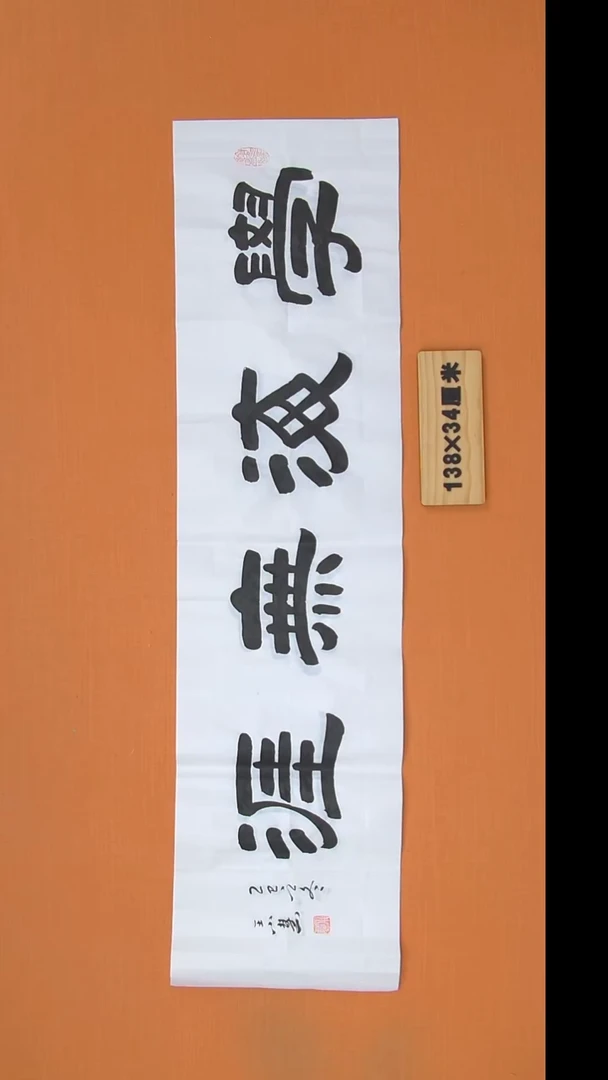 學海無涯
138×34厘米